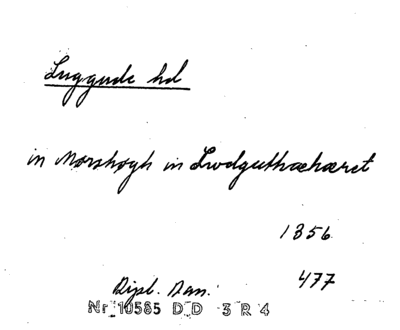 Luggude hd
in Morshøgh in Lwdguthæhæret
1356
477
Dipl. Dan.
Nr 10585 DD 3 R 4